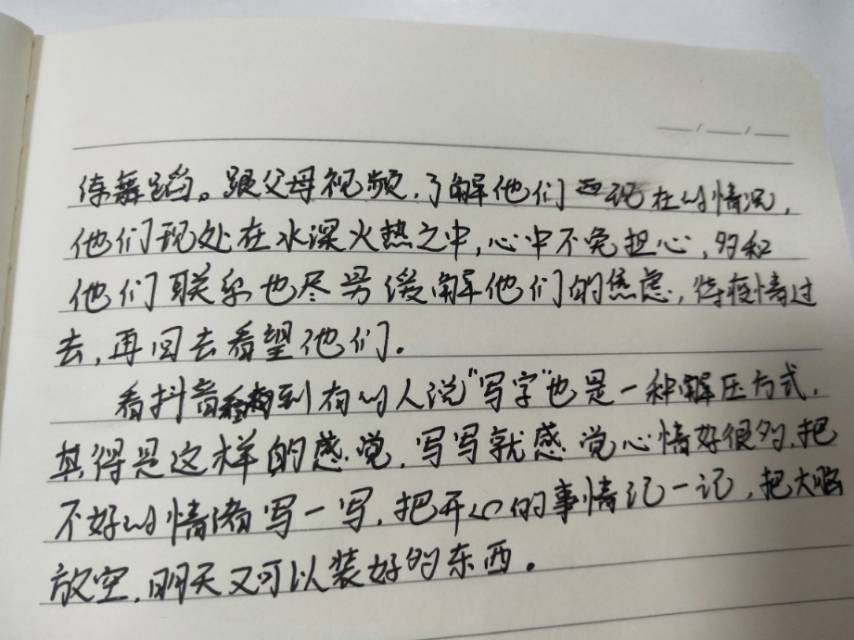 练舞蹈。跟父母视频,了解他们现在的情况,
他们现处在水深火热之中,心中不免担心,多和
他们联系也尽量缓解他们的焦虑,待疫情过
去,再回去看望他们。
看抖音看到有的人说"写字"也是一种解压方式,
真得是这样的感觉,写写就感觉心情好很多,把
不好的情绪写一写,把开心的事情记一记,把大脑
放空,明天又可以装好的东西。